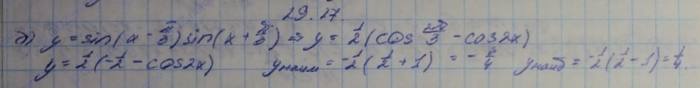 29.27.
б) y = sin(x - π/3) sin(x + π/3) ⇒ y = 1/2 (cos 2π/3 - cos2x)
y = 1/2 (-1/2 - cos2x) yнаим = -1/2 (1/2 + 1) = -3/4 yнаиб = -1/2 (1/2 - 1) = 1/4.